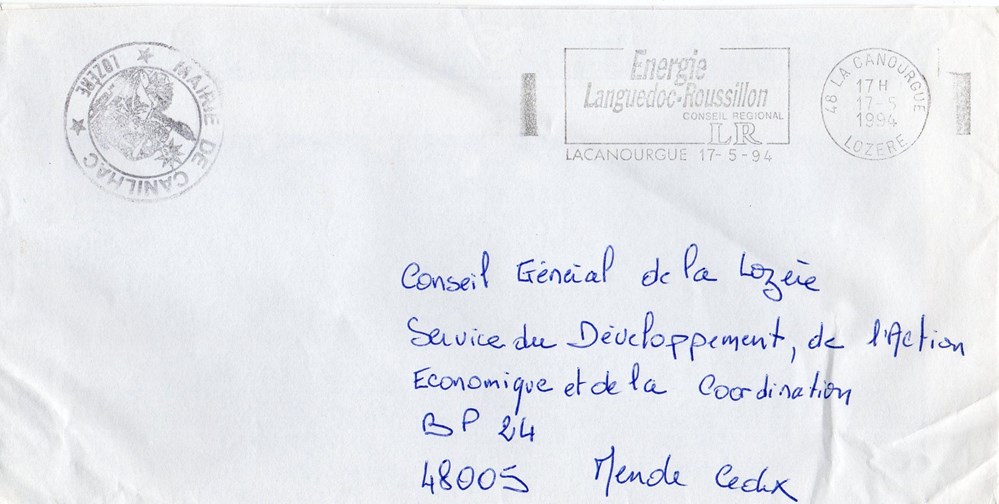 MAIRIE DE CANILHAC
LOZERE
Energie
Languedoc-Roussillon
CONSEIL REGIONAL
LR
LACANOURGUE 17-5-94
48 LA CANOURGUE
17 H
17-5
1994
LOZERE
Conseil Général de la Lozère
Service du Développement, de l'Action
Economique et de la Coordination
BP 24
48005 Mende Cedex